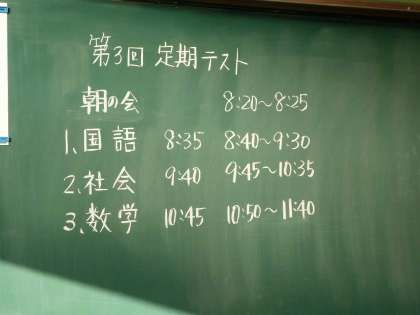 第3回 定期テスト
朝の会 8:20~8:25
1、国語 8:35 8:40~9:30
2、社会 9:40 9:45~10:35
3、数学 10:45 10:50~11:40